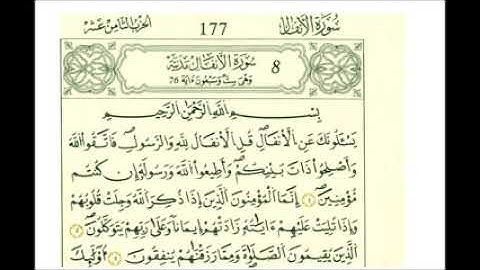 سورة الأنفال 177 الحزب الثامن عشر
سورة الأنفال مدنية 8
وهي ست وسبعون آية 76
بِسْمِ اللَّهِ الرَّحْمَٰنِ الرَّحِيمِ
يَسْـَٔلُونَكَ عَنِ الْأَنفَالِ قُلِ الْأَنفَالُ لِلَّهِ وَالرَّسُولِ فَاتَّقُوا اللَّهَ
وَأَصْلِحُوا ذَاتَ بَيْنِكُمْ وَأَطِيعُوا اللَّهَ وَرَسُولَهُ إِن كُنتُم
مُّؤْمِنِينَ ١ إِنَّمَا الْمُؤْمِنُونَ الَّذِينَ إِذَا ذُكِرَ اللَّهُ وَجِلَتْ قُلُوبُهُمْ
وَإِذَا تُلِيَتْ عَلَيْهِمْ ءَايَٰتُهُ زَادَتْهُمْ إِيمَانًا وَعَلَىٰ رَبِّهِمْ يَتَوَكَّلُونَ ٢
الَّذِينَ يُقِيمُونَ الصَّلَوٰةَ وَمِمَّا رَزَقْنَٰهُمْ يُنفِقُونَ ٣ أُوْلَٰٓئِكَ